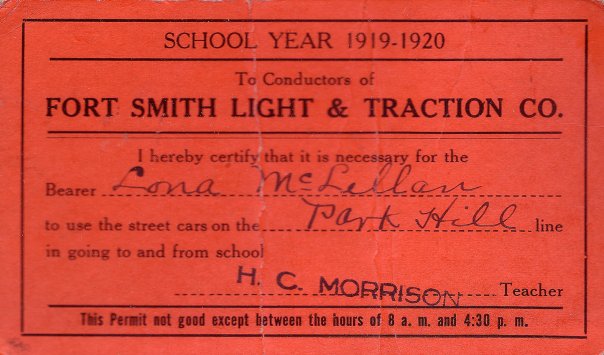 SCHOOL YEAR 1919-1920
To Conductors of
FORT SMITH LIGHT & TRACTION CO.
I hereby certify that it is necessary for the
Bearer Lona McLellan
to use the street cars on the Park Hill line
in going to and from school
H. C. MORRISON Teacher
This Permit not good except between the hours of 8 a. m. and 4:30 p. m.